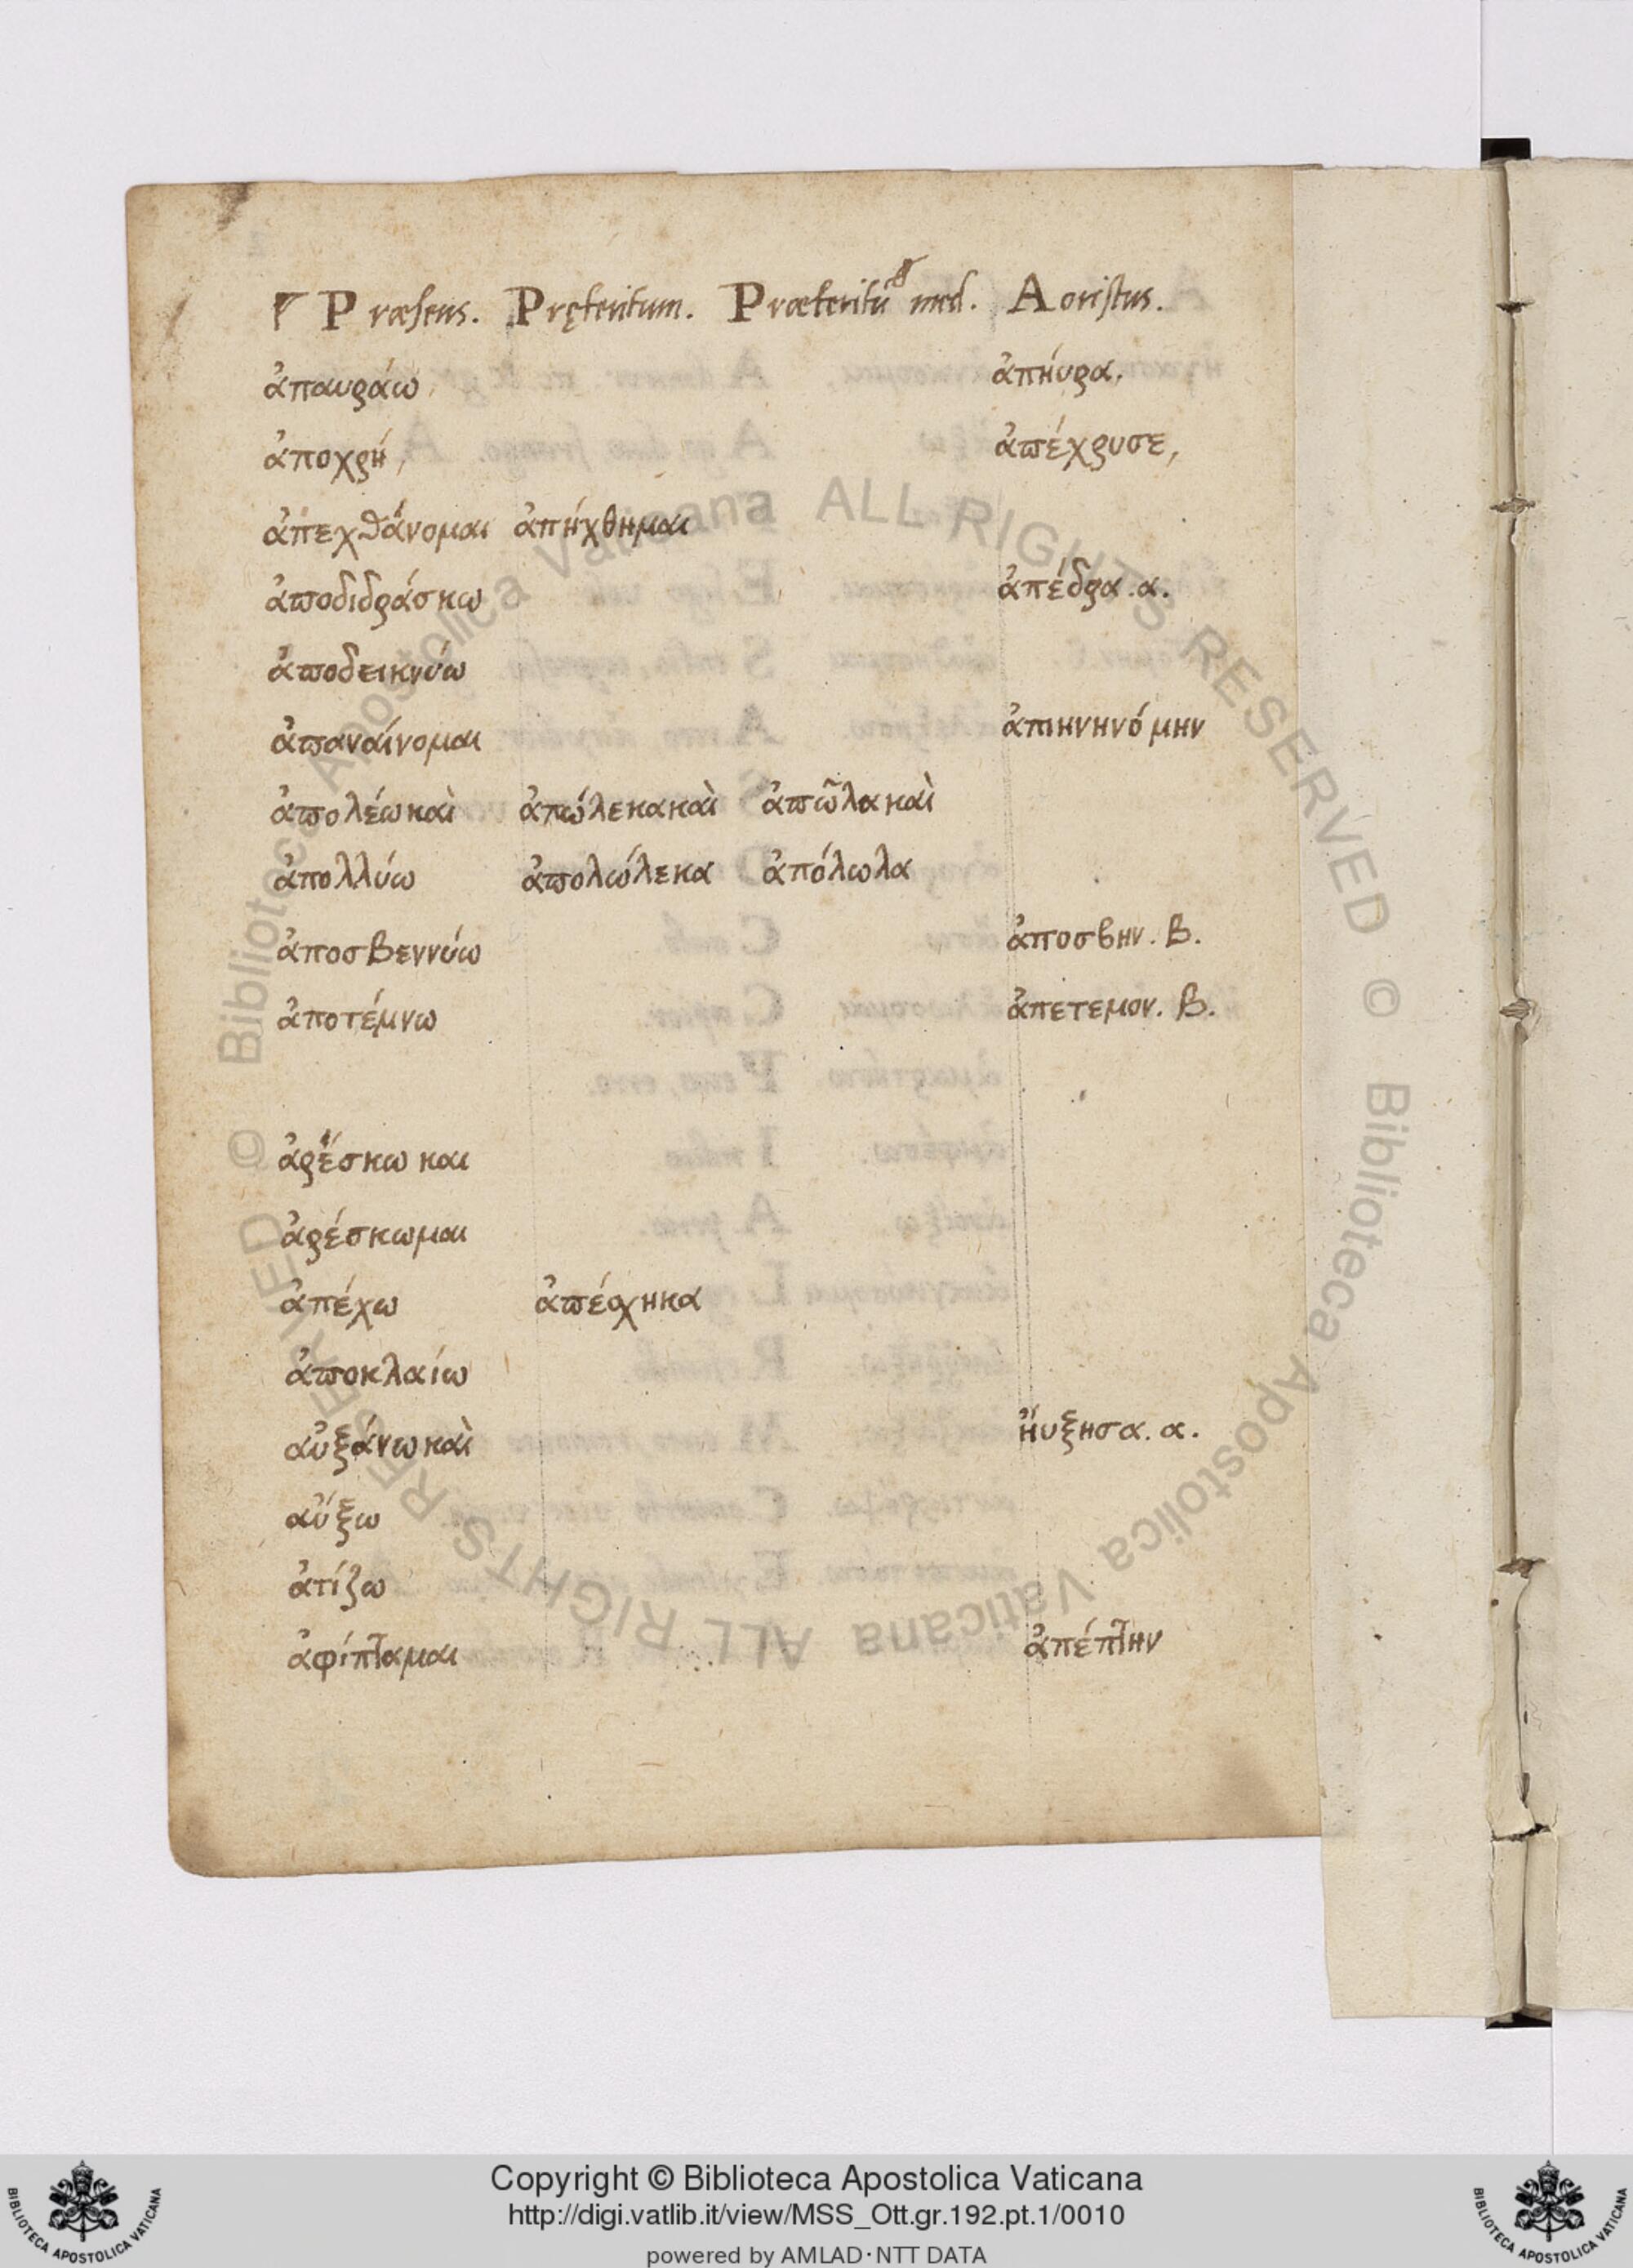 Præsens. Pręteritum. Præteritū med. Aoristus.
ἀπαυράω ἀπήυρα.
ἀποχρή, ἀπέχρυσε,
ἀπεχθάνομαι ἀπήχθημαι
ἀποδιδράσκω ἀπέδρα.α.
ἀποδεικνύω
ἀπαναίνομαι ἀπηνηνόμην
ἀπολέω καὶ ἀπώλεκα καὶ ἀπῶλα καὶ
ἀπολλύω ἀπολώλεκα ἀπόλωλα
ἀποσβεννύω ἀποσβην. β.
ἀποτέμνω ἀπετεμον. β.
ἀρέσκω και
ἀρέσκωμαι
ἀπέχω ἀπέσχηκα
ἀποκλαίω
αὐξάνω καὶ ἤυξησα. α.
αὔξω
ἀτίζω
ἀφίπταμαι ἀπέπτην
© Biblioteca Apostolica Vaticana ALL RIGHTS RESERVED © Biblioteca Apostolica Vaticana ALL RIGHTS RESERVED
Copyright © Biblioteca Apostolica Vaticana
http://digi.vatlib.it/view/MSS_Ott.gr.192.pt.1/0010
powered by AMLAD·NTT DATA
BIBLIOTECA APOSTOLICA VATICANA
BIBLIOTECA APOSTOLICA VATICANA